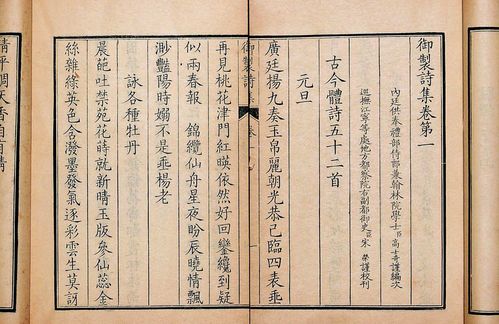 御製詩集卷第一
內廷供奉禮部侍郎兼翰林院學士臣高士奇謹編次
巡撫江寧等處地方都察院右副都御史臣宋犖謹校刊
古今體詩五十二首
元旦
廣廷揚九奏玉帛麗朝光恭己臨四表垂
御製詩集 卷一
再見桃花津門紅暎依然好回鑾纔到疑
似兩春報 錦纜仙舟星夜盼辰曉情飄
渺豔陽時嫋不是垂楊老
詠各種牡丹
晨葩吐禁苑花蒔就新晴玉版參仙蕊金
絲雜綠英色含潑墨發氣逐彩雲生莫訝
清平調天香自有情